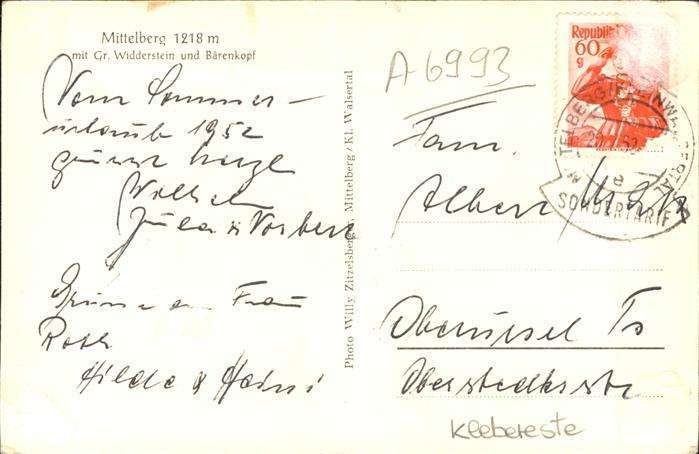 Mittelberg 1218 m
mit Gr. Widderstein und Bärenkopf
Vom Sommer-
urlaub 1952
grüsst herzl
Wilhelm
Julia u Norbert
Grüsse an Frau
Roth
Hilde & Heini
Photo Willy Zitzelsberger, Mittelberg / Kl. Walsertal
A 6993
Republik
60
g
SONDERTARIF
e
Fam.
Albert
Oberursel Ts
Oberstedterstr
Klebereste